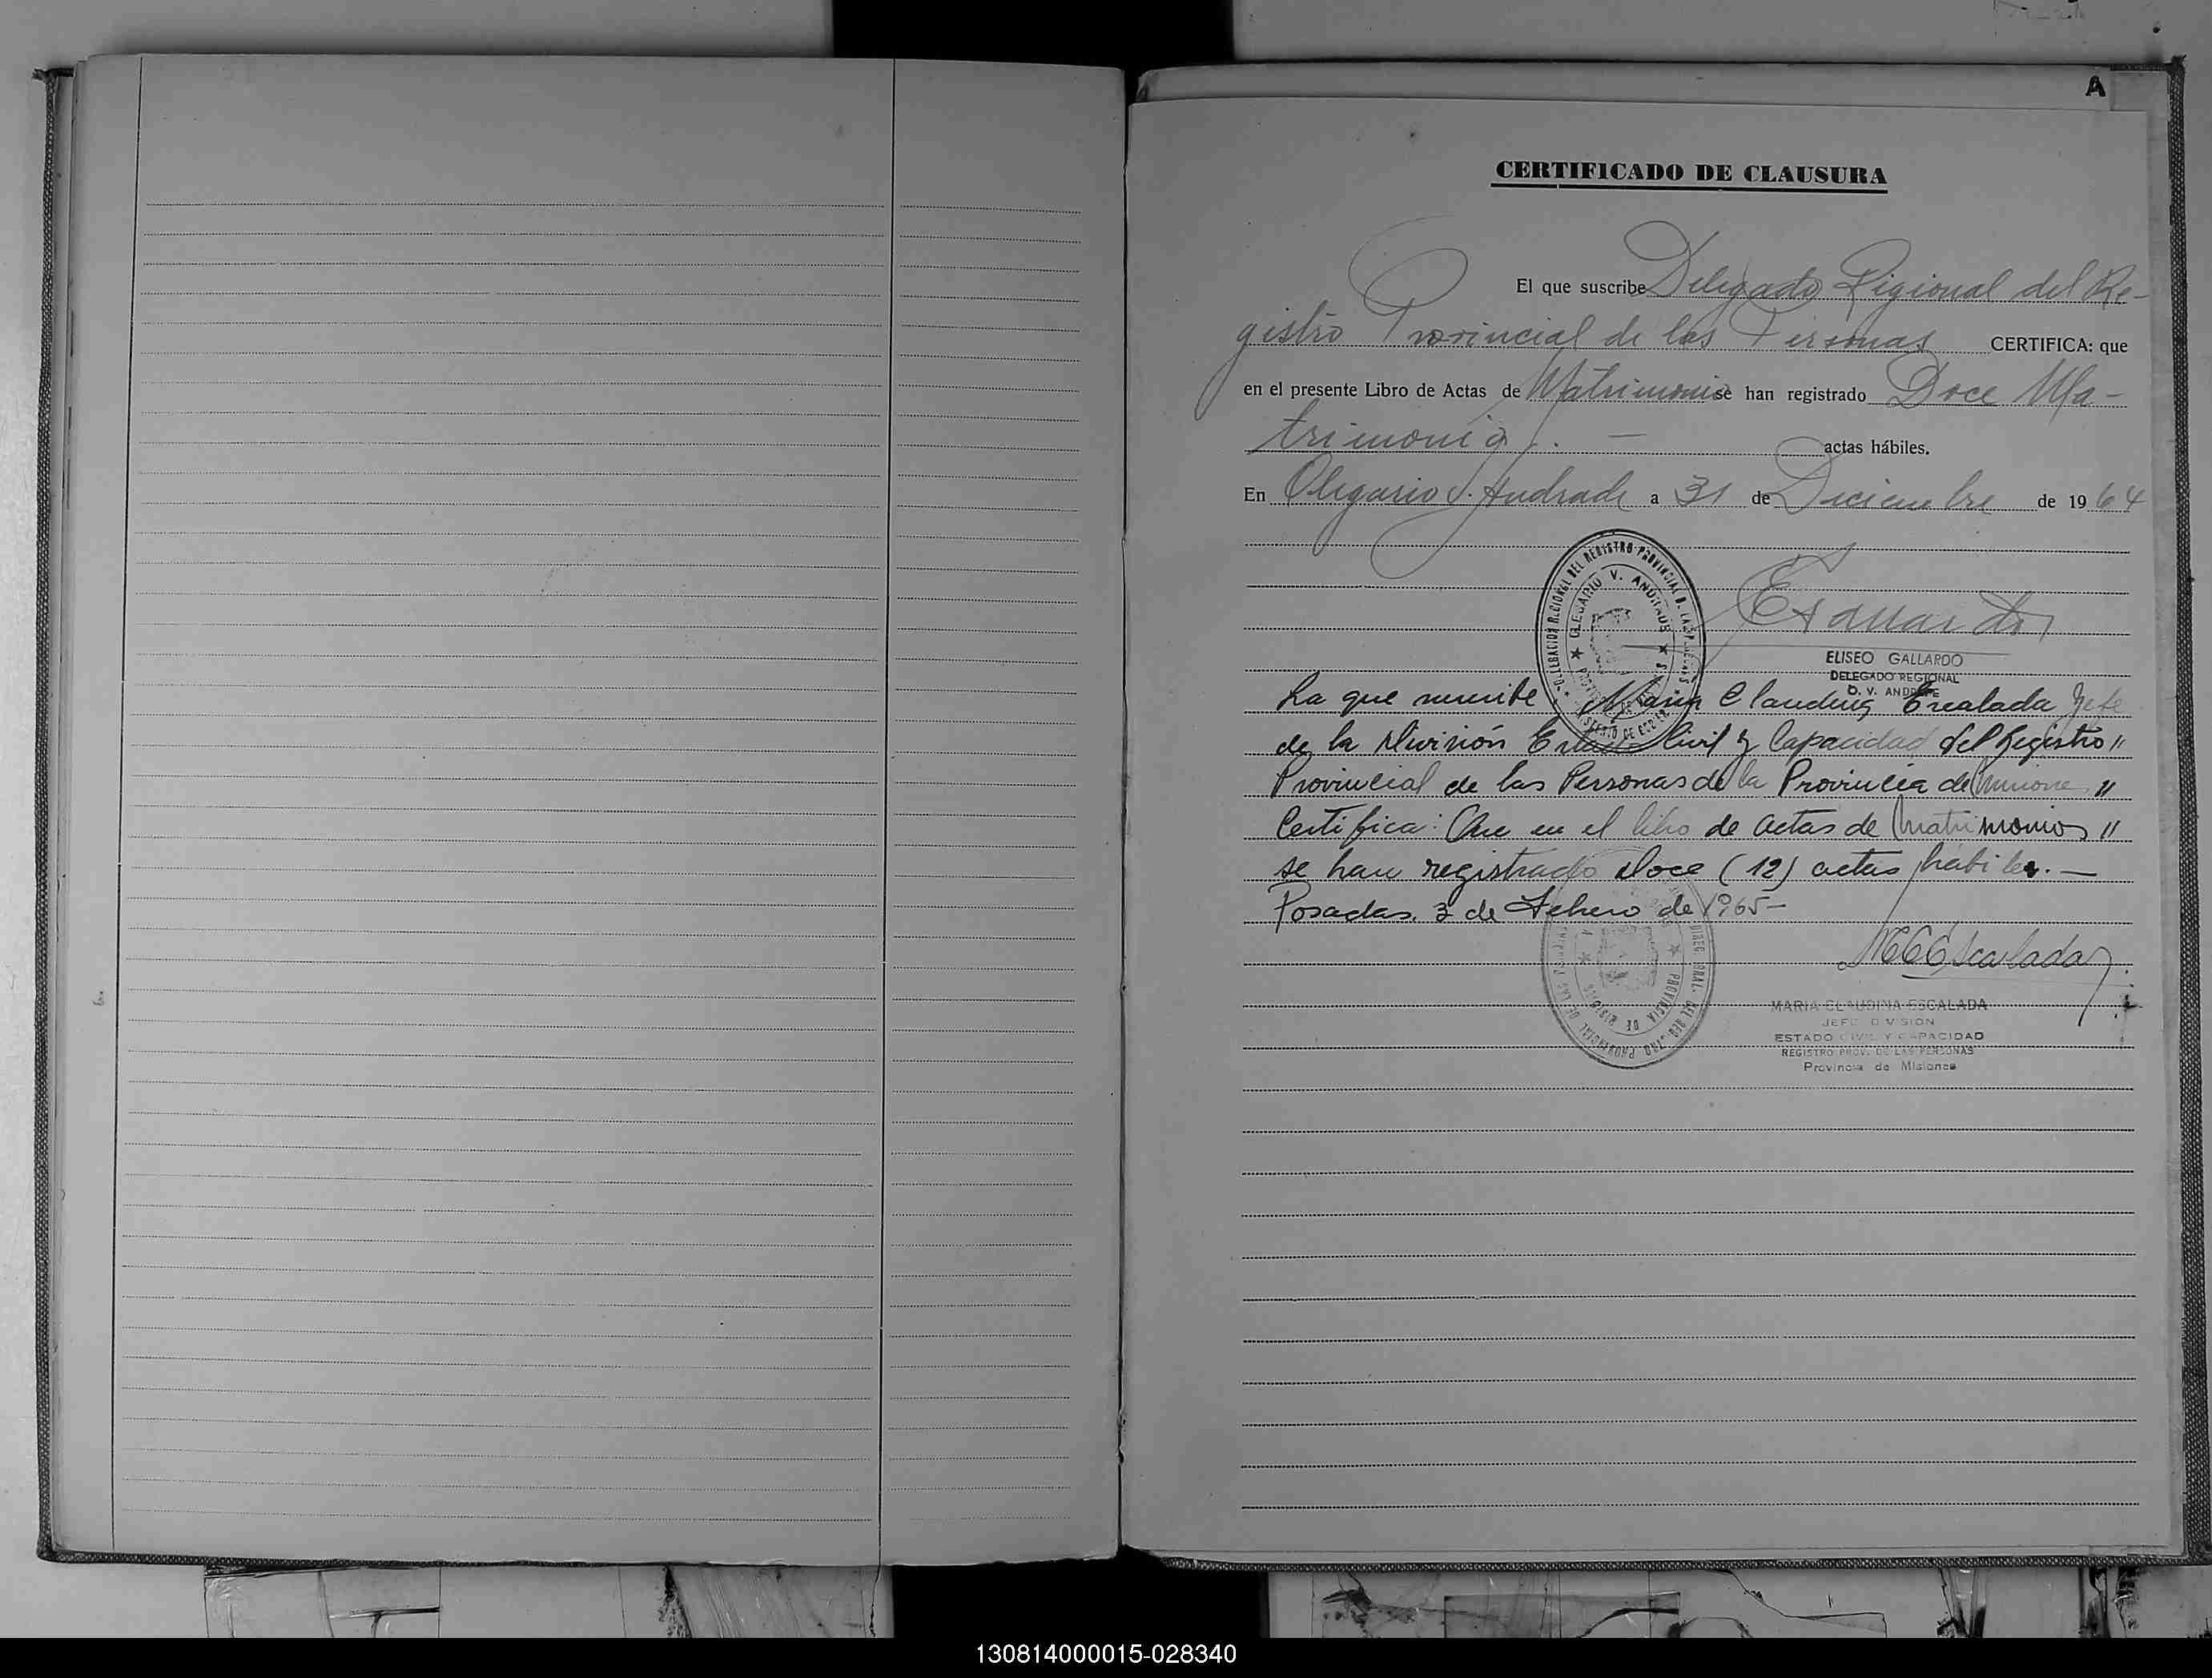 A
CERTIFICADO DE CLAUSURA
El que suscribe Delegado Rigional del Re-
gistro Provincial de las Personas CERTIFICA: que
en el presente Libro de Actas de Matrimonio se han registrado Doce Ma-
trimonio. — actas hábiles.
En Olegario V. Andrade a 31 de Diciembre de 1964
DELEGACION REGIONAL DEL REGISTRO PROVINCIAL D. LAS PERSONAS
OLEGARIO V. ANDRADE
ELISEO GALLARDO
DELEGADO REGIONAL
O. V. ANDRADE
La que suscribe Maria Claudina Escalada Jefe
de la División Estado Civil y Capacidad del Registro "
Provincial de las Personas de la Provincia de Misiones "
Certifica: Que en el libro de actas de Matrimonios "
se han registrado Doce (12) actas hábiles. —
Posadas, 3 de Febrero de 1965 -
MCEscalada
PROVINCIA DE MISIONES
MARIA CLAUDINA ESCALADA
JEFE DIVISION
ESTADO CIVIL Y CAPACIDAD
REGISTRO PROV. DE LAS PERSONAS
Provincia de Misiones
130814000015-028340